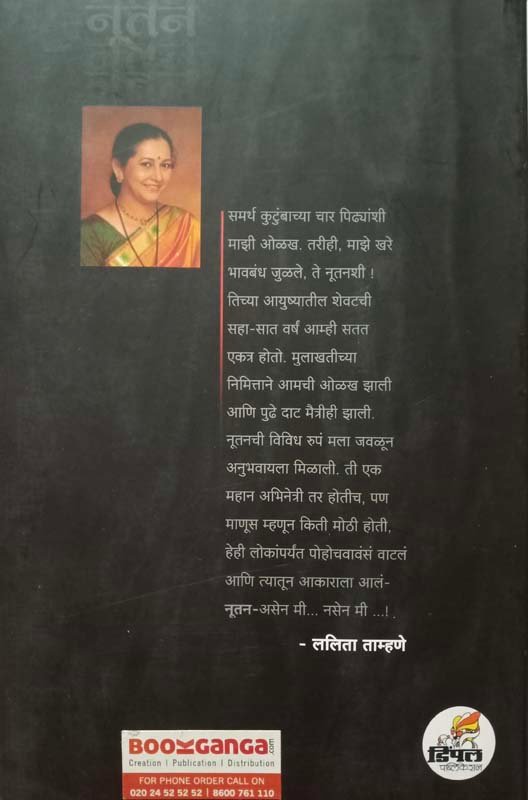 नूतन
समर्थ कुटुंबाच्या चार पिढ्यांशी
माझी ओळख. तरीही, माझे खरे
भावबंध जुळले, ते नूतनशी !
तिच्या आयुष्यातील शेवटची
सहा-सात वर्षं आम्ही सतत
एकत्र होतो. मुलाखतीच्या
निमित्ताने आमची ओळख झाली
आणि पुढे दाट मैत्रीही झाली.
नूतनची विविध रुपं मला जवळून
अनुभवायला मिळाली. ती एक
महान अभिनेत्री तर होतीच, पण
माणूस म्हणून किती मोठी होती,
हेही लोकांपर्यंत पोहोचवावंसं वाटलं
आणि त्यातून आकाराला आलं-
नूतन-असेन मी... नसेन मी ...!
- ललिता ताम्हणे
BOOKGANGA.com
Creation | Publication | Distribution
FOR PHONE ORDER CALL ON
020 24 52 52 52 | 8600 761 110
डिंपल
पब्लिकेशन